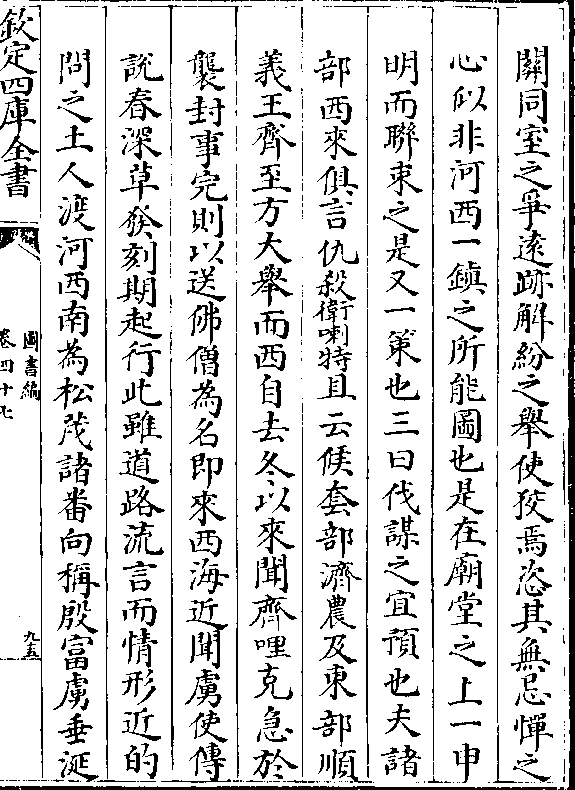 關同室之爭遠跡解紛之舉使狡焉恣其無忌憚之
心似非河西一鎮之所能圖也是在廟堂之上一申
明而聯束之是又一策也三曰伐謀之宜預也夫諸
部西來俱言仇殺衛喇特且云候套部濟農及東部順
義王齊至方大舉而西自去冬以來聞齊哩克急於
襲封事完則以送佛僧為名即來西海近聞虜使傳
説春深草發刻期起行此雖道路流言而情形近的
問之土人渡河西南為松茂諸番向稱殷富虜垂涎
欽定四庫全書
圖書編
卷四十七
九五